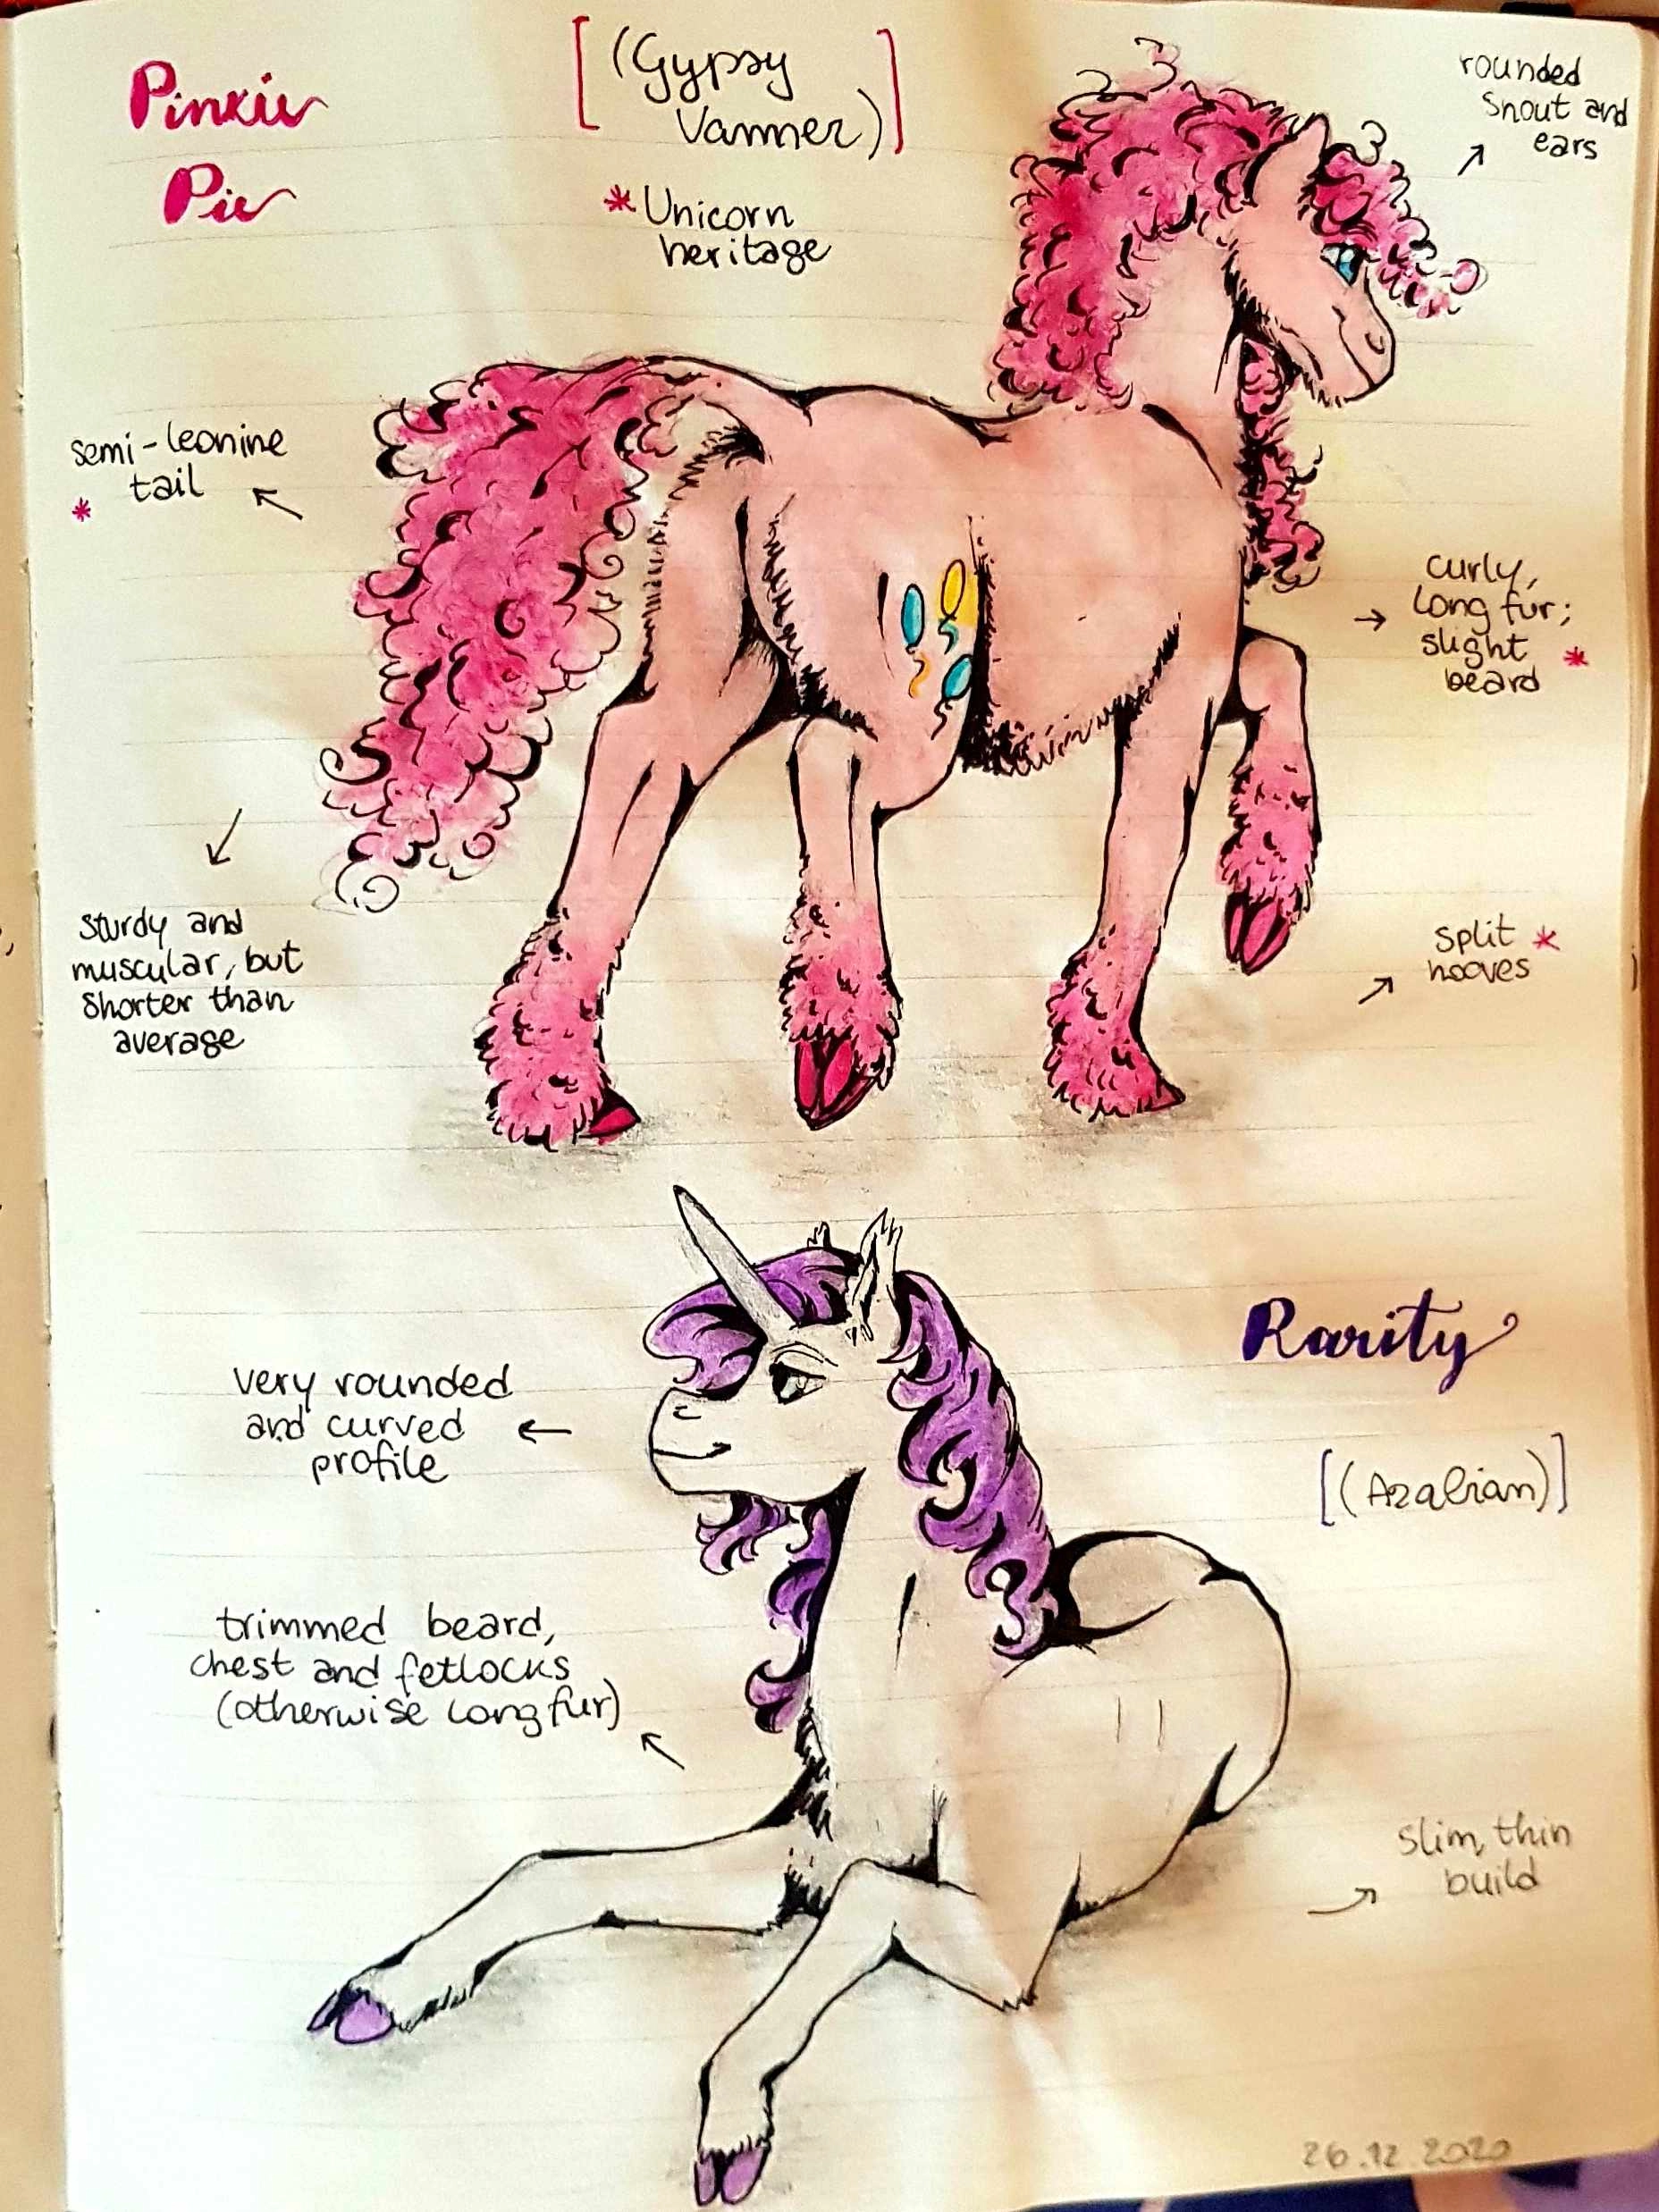 Pinkie
Pie
[(Gypsy
Vanner)]
* Unicorn
heritage
rounded
snout and
ears
semi-leonine
tail
*
curly,
long fur;
slight *
beard
sturdy and
muscular, but
shorter than
average
split *
hooves
Rarity
[(Arabian)]
very rounded
and curved
profile
trimmed beard,
chest and fetlocks
(otherwise long fur)
slim, thin
build
26.12.2020